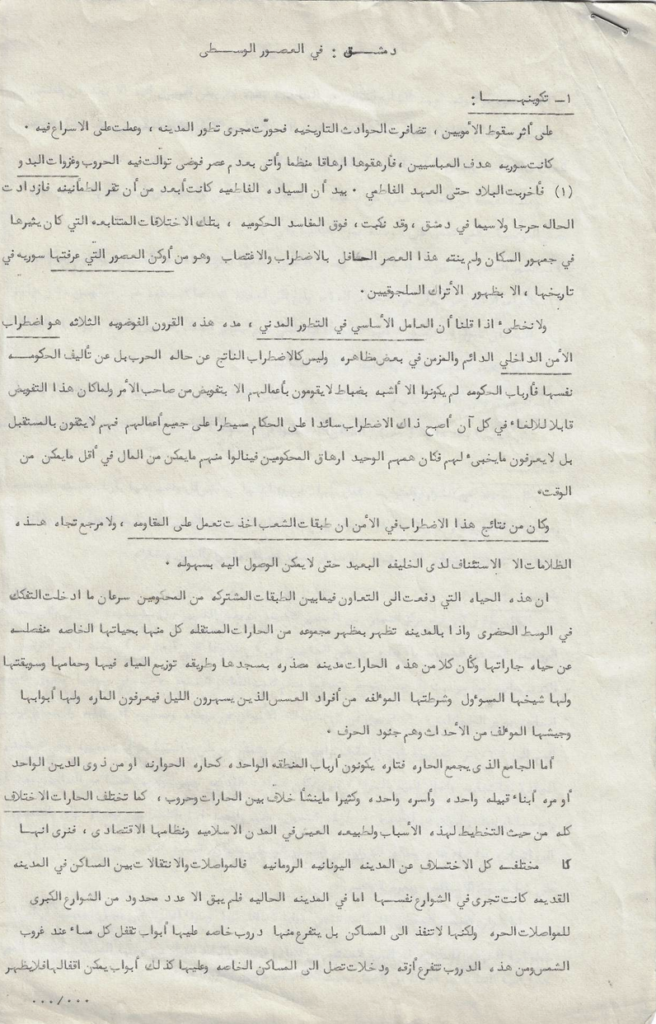 دمشـــق : في العصور الوسـطى
١- تكوينهـــــا :
على أثر سقوط الأمويين ، تضافرت الحوادث التاريخيه فحورّت مجرى تطور المدينه ، وعملت على الاسراع فيه .
كانت سوريه هدف العباسيين ، فأرهقوها ارهاقا منظما وأتى بعدهم عصر فوضى توالت فيه الحروب وغزوات البدو
(١) فأخربت البلاد حتى العهد الفاطمي . بيد أن السياده الفاطميه كانت أبعد من أن تقر الطمأنينه فازدادت
الحاله حرجا ولاسيما في دمشق ، وقد نكبت ، فوق المفاسد الحكوميه ، بتلك الاختلافات المتتابعه التي كان يثيرها
في جمهور السكان ولم ينته هذا العصر الحافل بالاضطراب والاغتصاب وهو من أوكن العصور التي عرفتها سوريه في
تاريخها ، الا بظهور الأتراك السلجوقيين .
ولا نخطىء اذا قلنا أن العامل الأساسي في التطور المدني ، مده هذه القرون الفوضويه الثلاثه هو اضطراب
الأمن الداخلي الدائم والمزمن في بعض مظاهره وليس كالاضطراب الناتج عن حاله الحرب بل عن تأليف الحكومـــه
نفسها فأرباب الحكومه لم يكونوا الا أشبه بضباط لا يقومون بأعمالهم الا بتفويض من صاحب الأمر ولما كان هذا التفويض
قابلا للالغاء في كل آن أصبح ذاك الاضطراب سائدا على الحكام مسيطرا على جميع أعمالهم فهم لا يثقون بالمستقبل
بل لا يعرفون ما يخبىء لهم فكان همهم الوحيد ارهاق المحكومين فينالوا منهم مايمكن من المال في أقل مايمكن من
الوقت.
وكان من نتائج هذا الاضطراب في الأمن ان طبقات الشعب اخذت تعمل على المقاومه ، ولا مرجع تجاه هـــذه
الظلامات الا الاستئناف لدى الخليفه البعيد حتى لا يمكن الوصول اليه بسهوله .
ان هذه الحياه التي دفعت الى التعاون فيمابين الطبقات المشتركه من المحكومين سرعان ما ادخلت التفكك
في الوسط الحضرى واذا بالمدينه تظهر بمظهر مجموعه من الحارات المستقله كل منها بحياتها الخاصه منفصلـــه
عن حياه جاراتها وكأن كلا من هذه الحارات مدينه مصغره بمسجدها وطريقه توزيع المياه فيها وحمامها وسويقتها
ولها شيخها المسؤول وشرطتها المؤلفه من أفراد العسس الذين يسهرون الليل فيعرفون الماره ولها أبوابها
وجيشها المؤلف من الأحداث وهم جنود الحرف .
أما الجامع الذى يجمع الحاره فتاره يكونون أرباب المنطقه الواحده كحاره الحوارنه او من ذوى الدين الواحد
أو مره أبناء قبيله واحده وأسره واحده وكثيرا ماينشأ خلاف بين الحارات وحروب ، كما تختلف الحارات الاختلاف
كله من حيث التخطيط لهذه الأسباب ولطبيعه العيش في المدن الاسلاميه ونظامها الاقتصادى ، فنرى انهـــا
كا مختلفــه كل الاختــلاف عن المدينه اليونانيه الرومانيه فالمواصلات والانتقالات بين المساكن في المدينه
القديمه كانت تجرى في الشوارع نفســها اما في المدينه الحاليه فلم يبق الا عدد محدود من الشوارع الكبرى
للمواصلات الحره ولكنها لا تنفذ الى المساكن بل يتفرع منها دروب خاصه عليها أبواب تقفل كل مساء عند غروب
الشمس ومن هذه الدروب تتفرع أزقه ودخلات تصل الى المساكن الخاصه وعليها كذلك أبواب يمكن اقفالها فلا يظهر
٠٠٠/٠٠٠